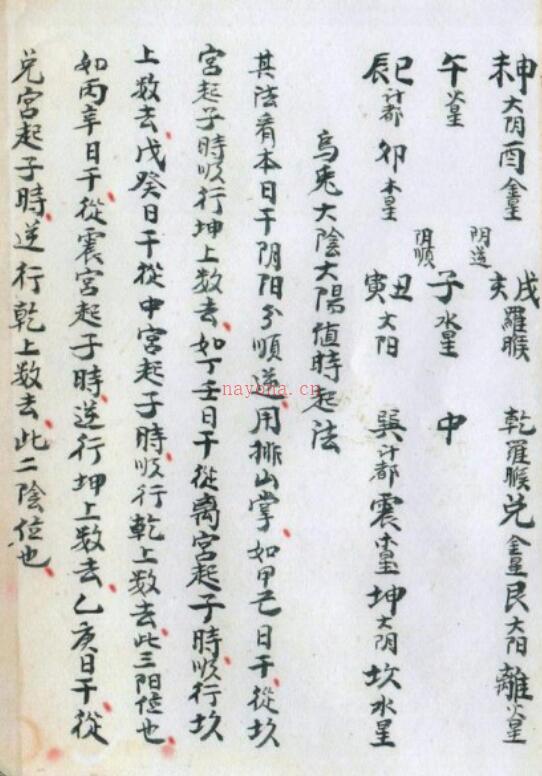 申未大阴酉金星 戌亥羅睺 乾羅睺兑金星艮大阳離火星
阴逆
午火星 子水星 中
阴順
巳辰计都卯木星 丑寅大阳 巽计都震木星坤大阴坎水星
烏兎大陰大陽值時起法
其法看本日干阴阳分順逆用排山掌如甲己日干從坎
宮起子時順行坤上数去如丁壬日干從离宮起子時順行坎
上数去戊癸日干從中宮起子時順行乾上数去此三阳位也
如丙辛日干從震宮起子時逆行坤上数去乙庚日干從
兑宮起子時逆行乾上数去此二陰位也
nayona.cn